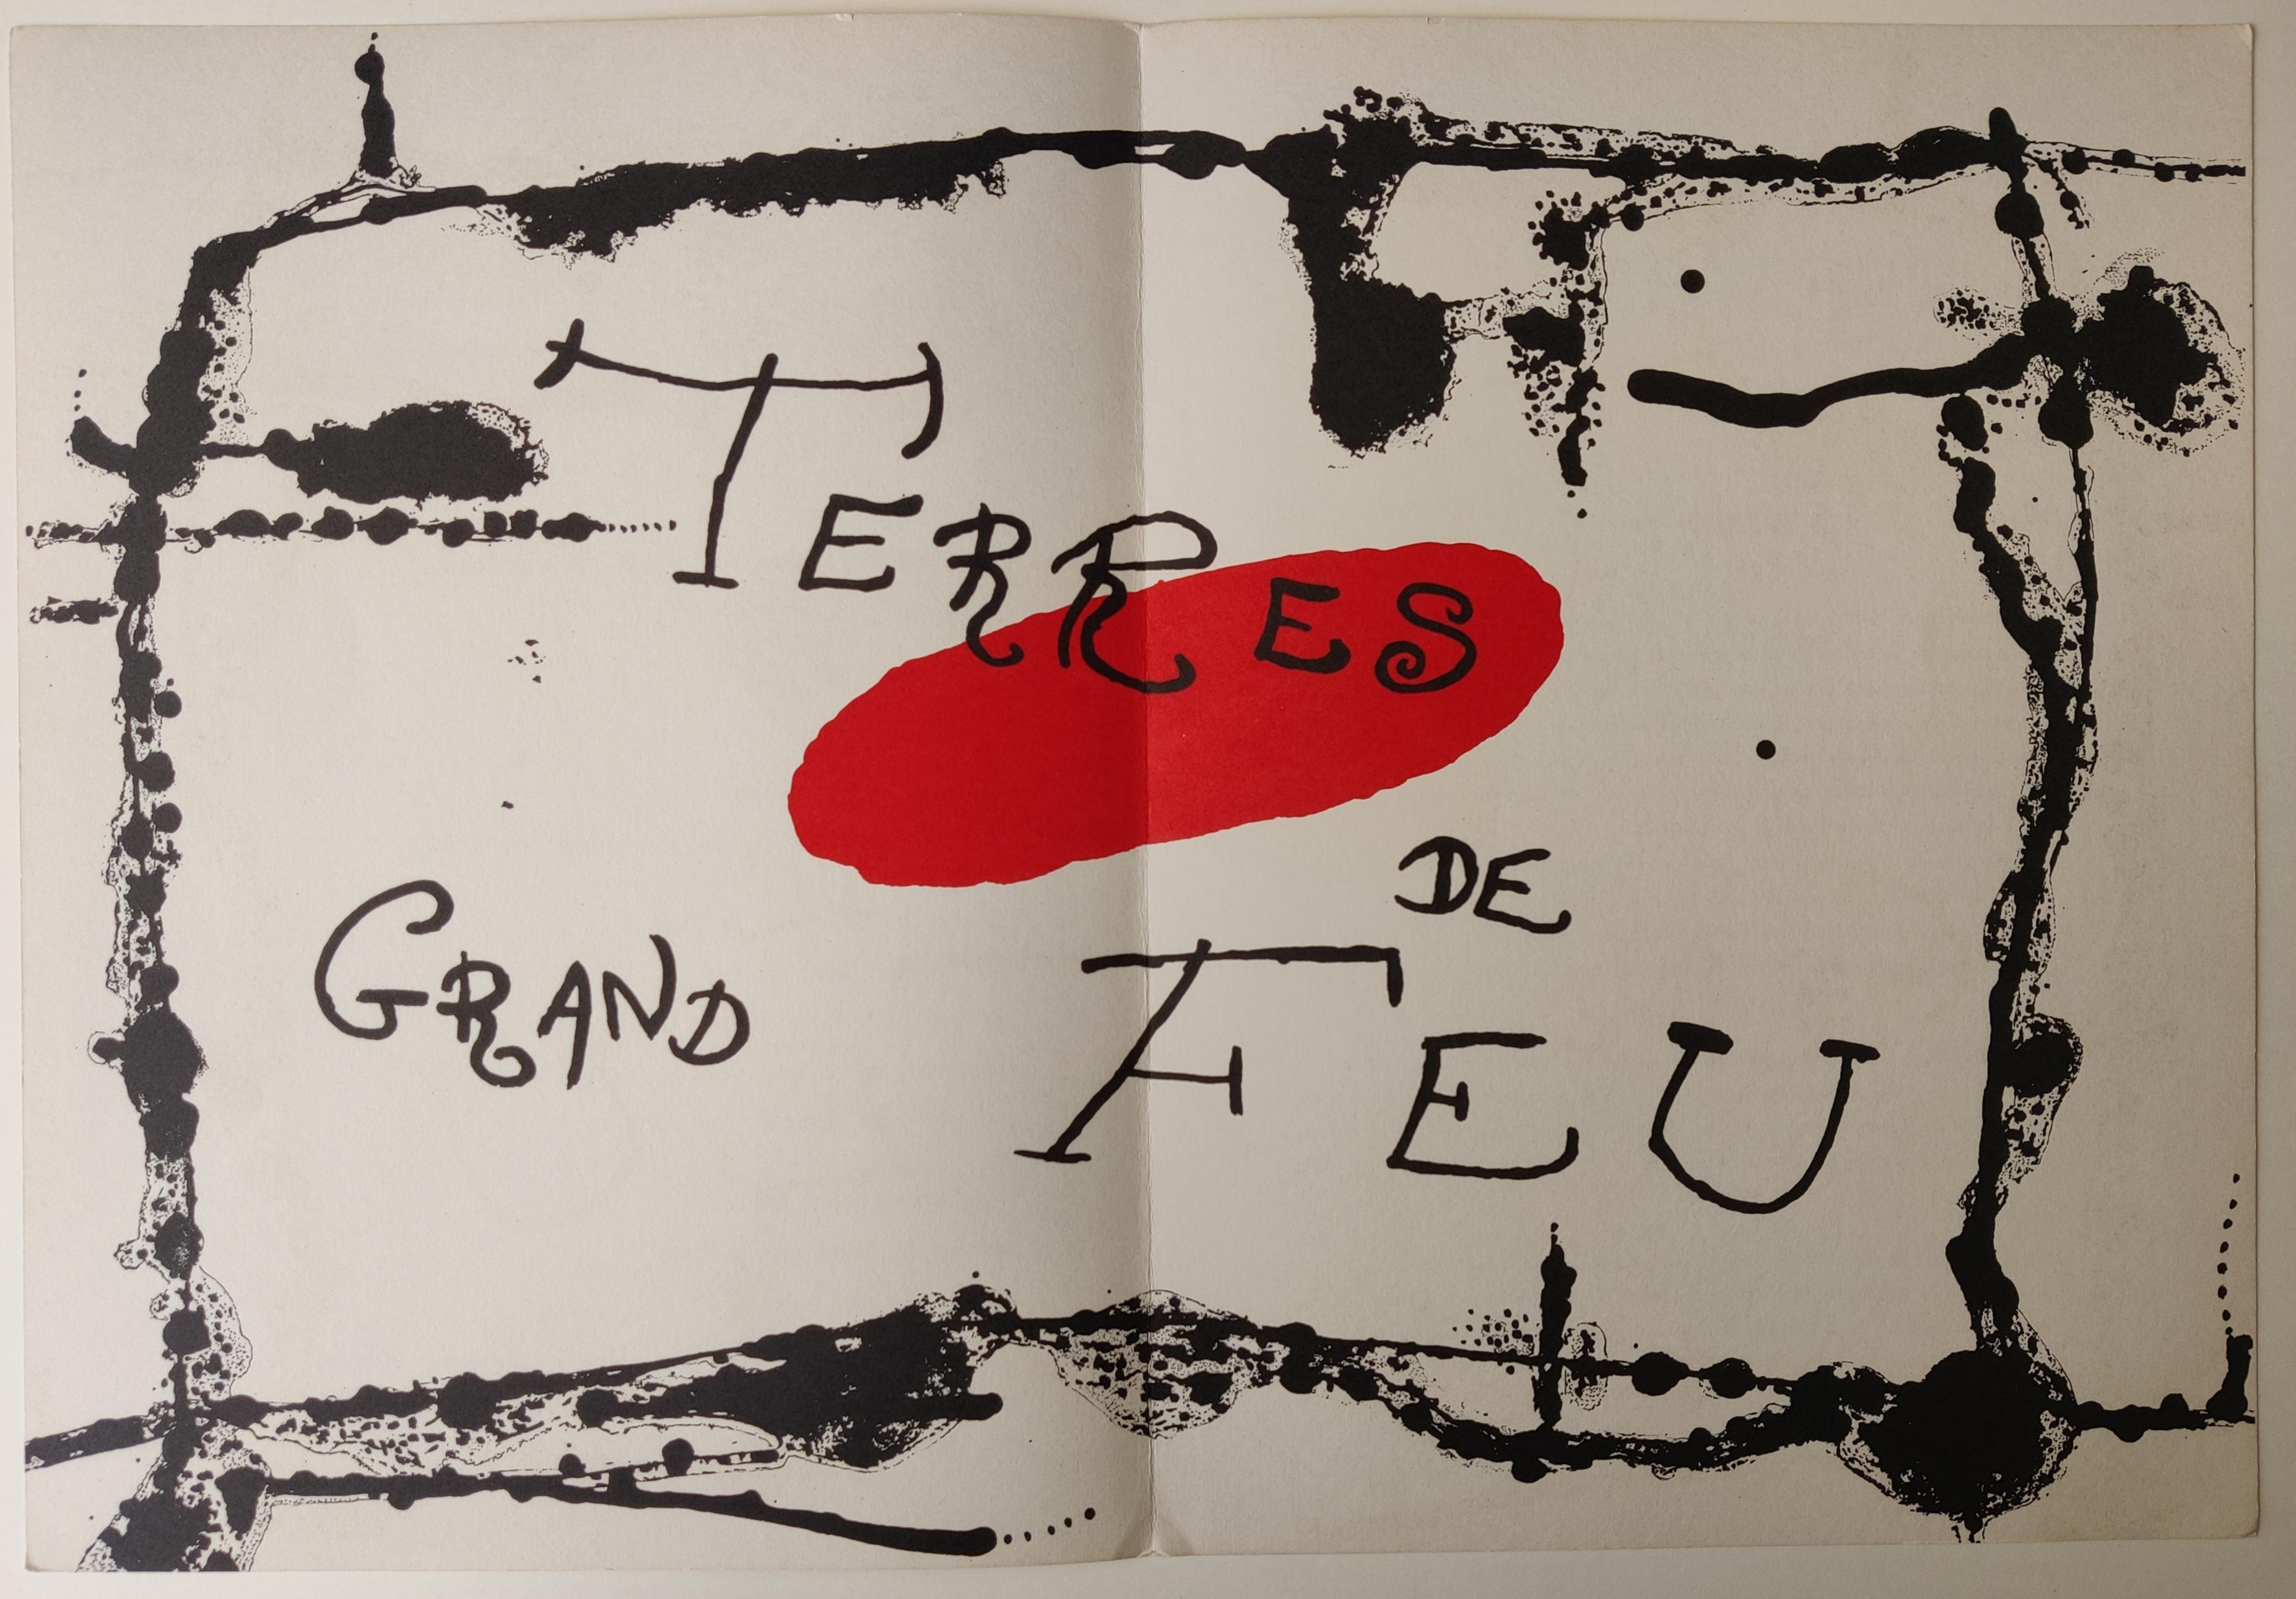 TERRES
DE
GRAND FEU